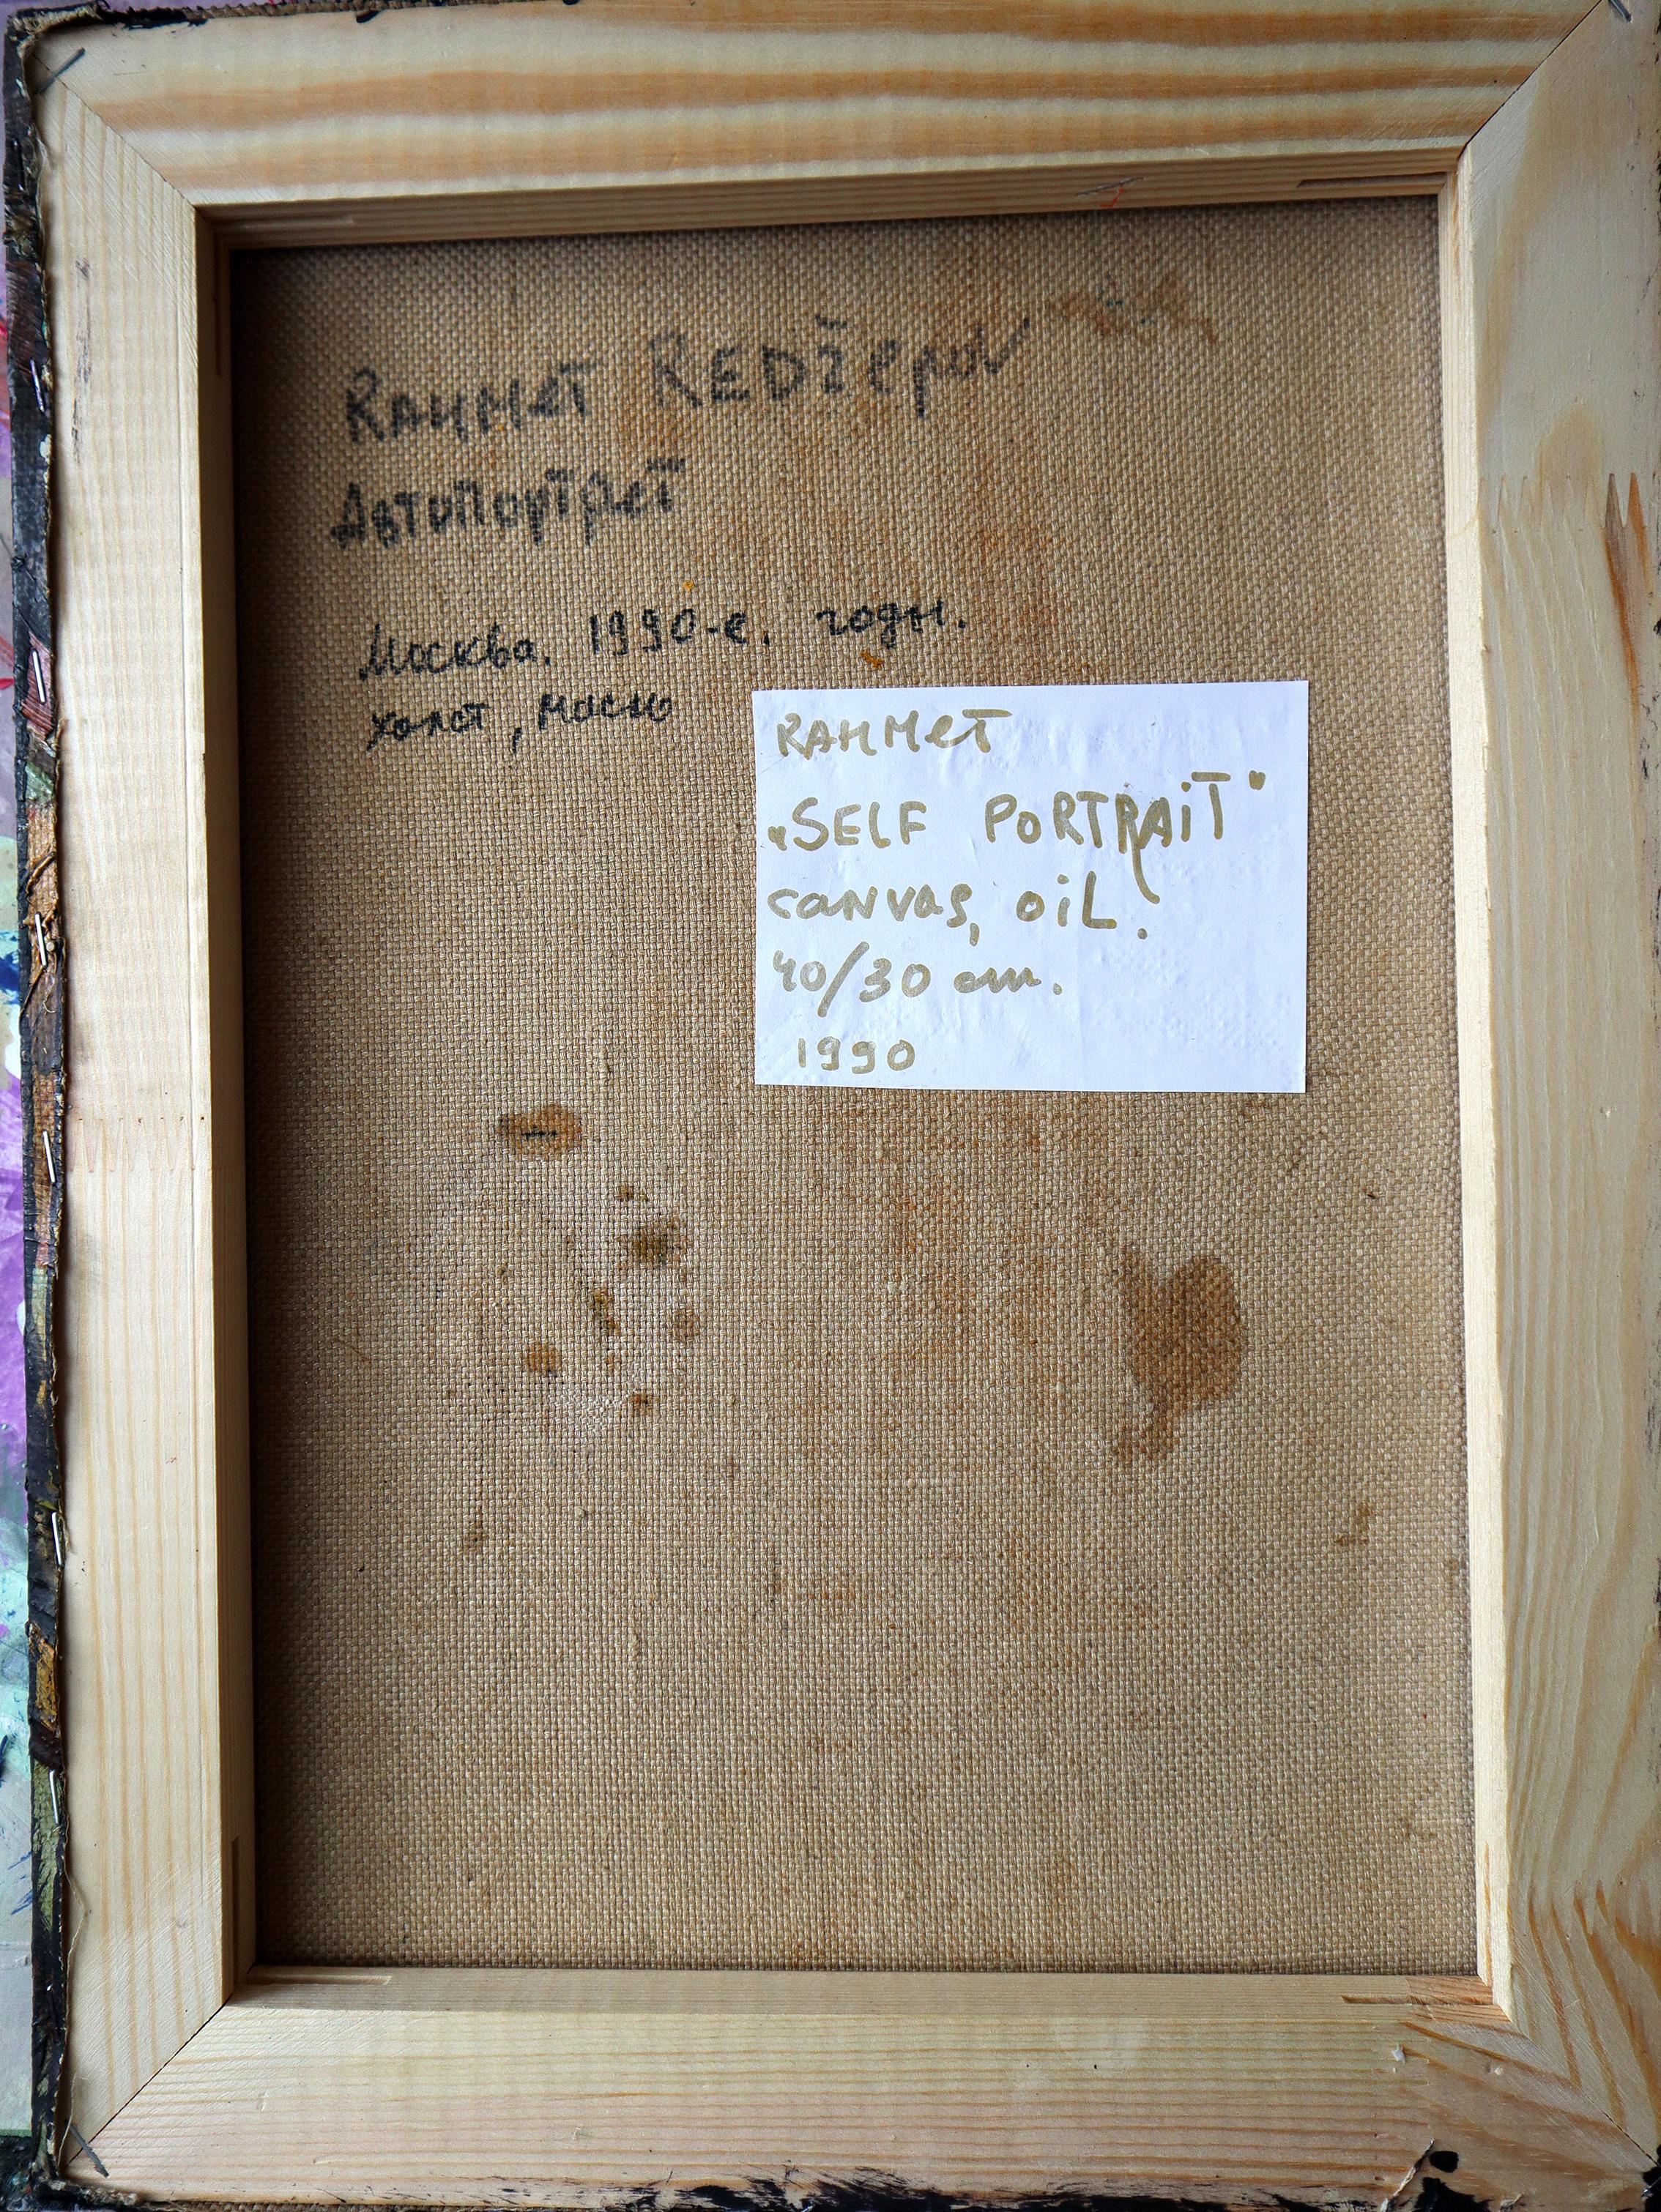 RAHMET REDŽepov
Автопортрет
Москва. 1990-е. годы.
холст, масло
RAHMET
„SELF PORTRAIT"
canvas, oil.
40/30 cm.
1990